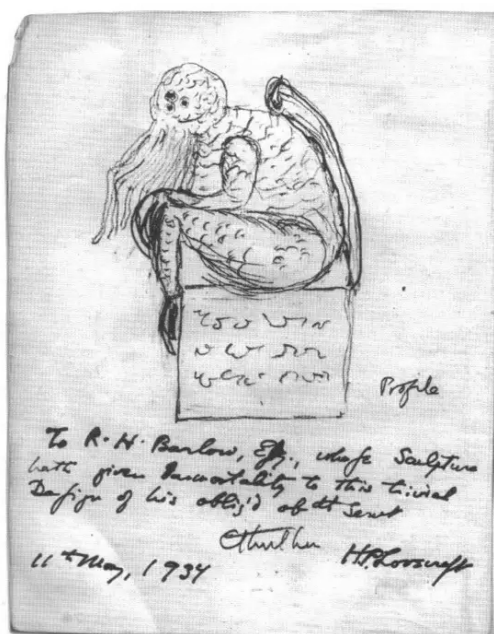 Profile
To R. H. Barlow, Eſq., whoſe Sculpture
hath given Immortality to this trivial
Deſign of his oblig'd obᵗ Servᵗ
Cthulhu H.P. Lovecraft
11ᵗʰ May, 1934